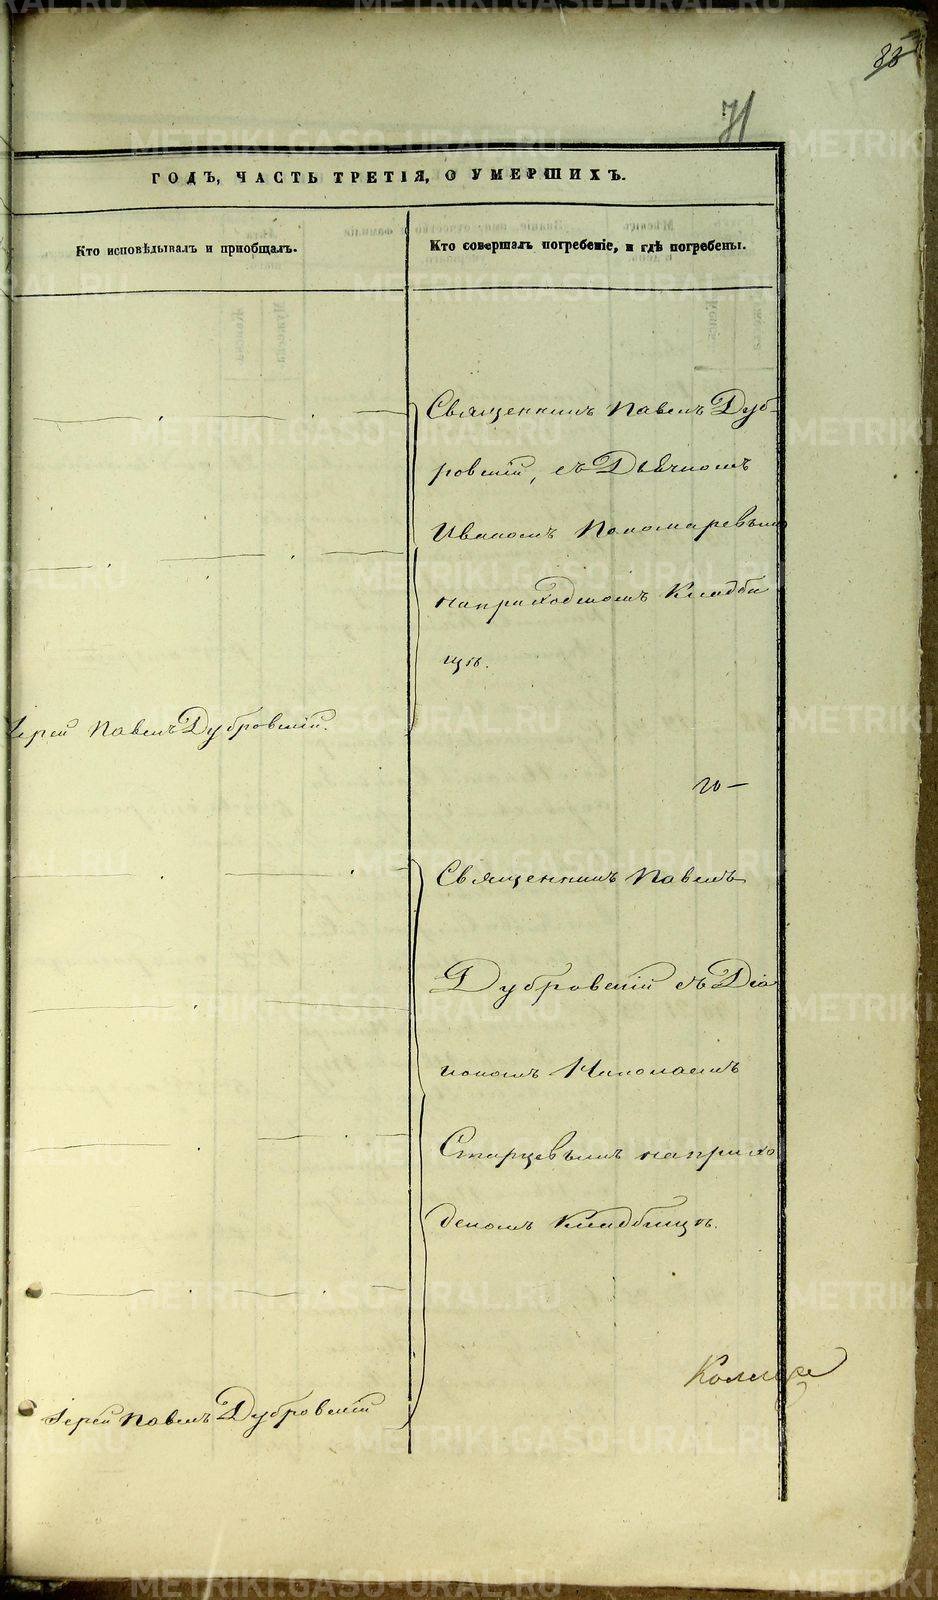 83
71
ГОДЪ, ЧАСТЬ ТРЕТІЯ, О УМЕРШИХЪ.
Кто исповѣдывалъ и приобщалъ.
Кто совершалъ погребеніе, и гдѣ погребены.
Священникъ Павелъ Дуб-
ровскій, съ Дьячкомъ
Иваномъ Пономаревымъ
наприходскомъ Кладби
щѣ.
Іерей Павелъ Дубровскій.
го—
Священникъ Павелъ
Дубровскій съ Діа
кономъ Николаемъ
Старцевымъ наприхо
дскомъ Кладбищѣ.
Іерей Павелъ Дубровскій
METRIKI.GASO-URAL.RU